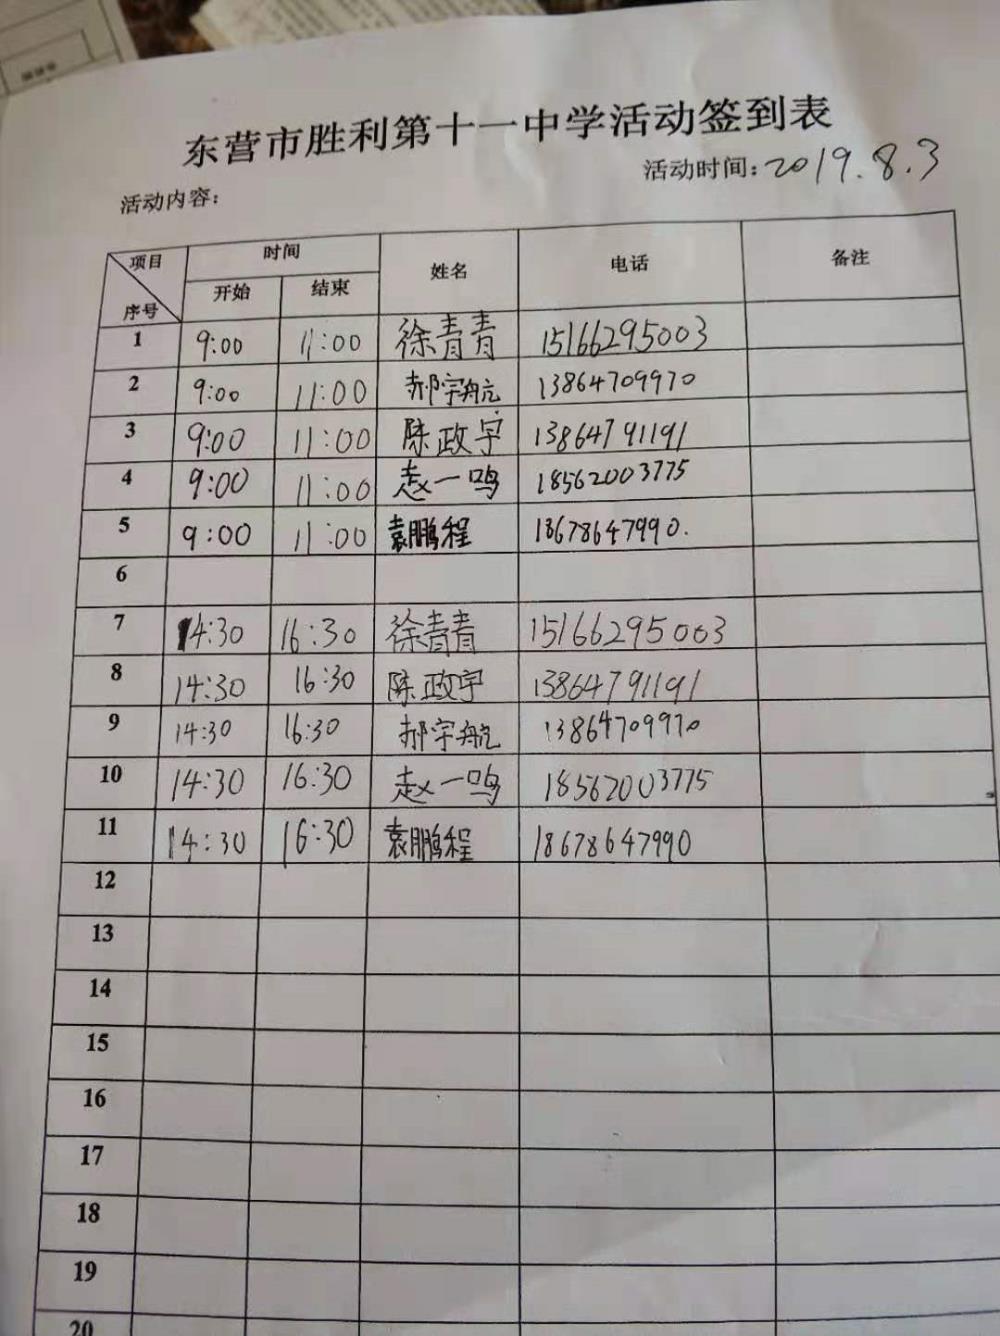 东营市胜利第十一中学活动签到表
活动时间:2019.8.3
活动内容:
项目 时间 姓名 电话 备注
序号 开始 结束
1 9:00 11:00 徐青青 15166295003
2 9:00 11:00 郝宇航 13864709970
3 9:00 11:00 陈政宇 13864791191
4 9:00 11:00 赵一鸣 18562003775
5 9:00 11:00 袁鹏程 18678647990.
6
7 14:30 16:30 徐青青 15166295003
8 14:30 16:30 陈政宇 13864791191
9 14:30 16:30 郝宇航 13864709970
10 14:30 16:30 赵一鸣 18562003775
11 14:30 16:30 袁鹏程 18678647990
12
13
14
15
16
17
18
19
20